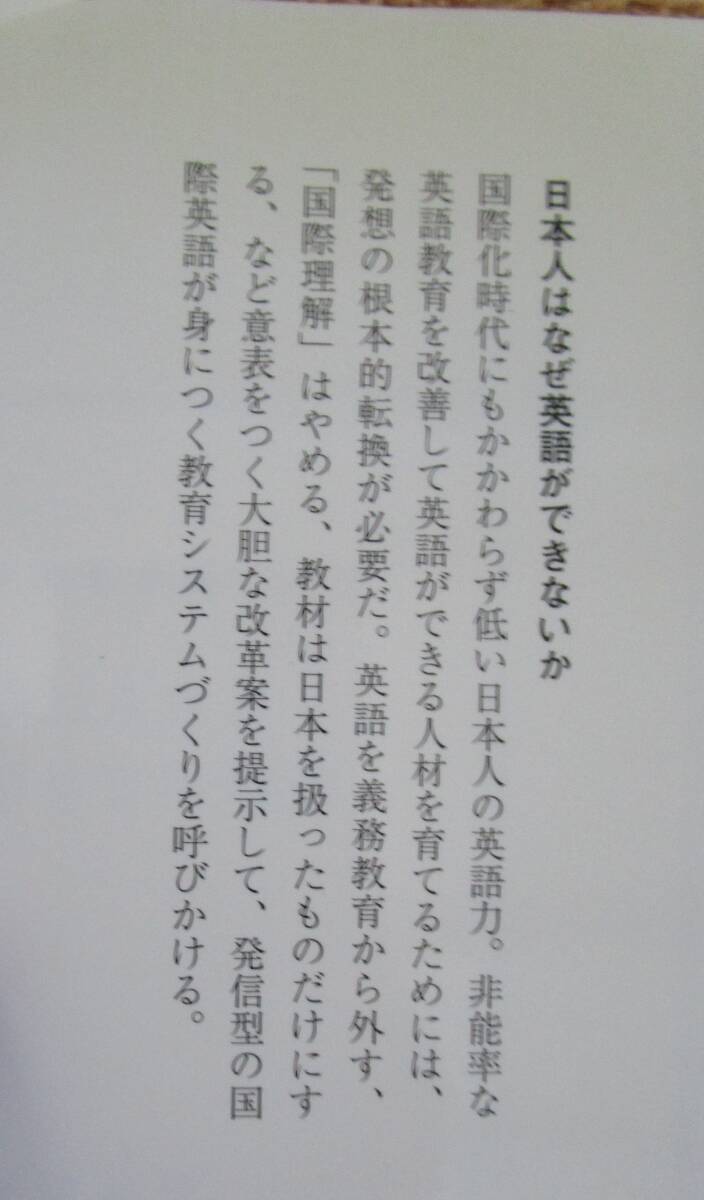 日本人はなぜ英語ができないか
国際化時代にもかかわらず低い日本人の英語力。非能率な
英語教育を改善して英語ができる人材を育てるためには、
発想の根本的転換が必要だ。英語を義務教育から外す、
「国際理解」はやめる、教材は日本を扱ったものだけにす
る、など意表をつく大胆な改革案を提示して、発信型の国
際英語が身につく教育システムづくりを呼びかける。